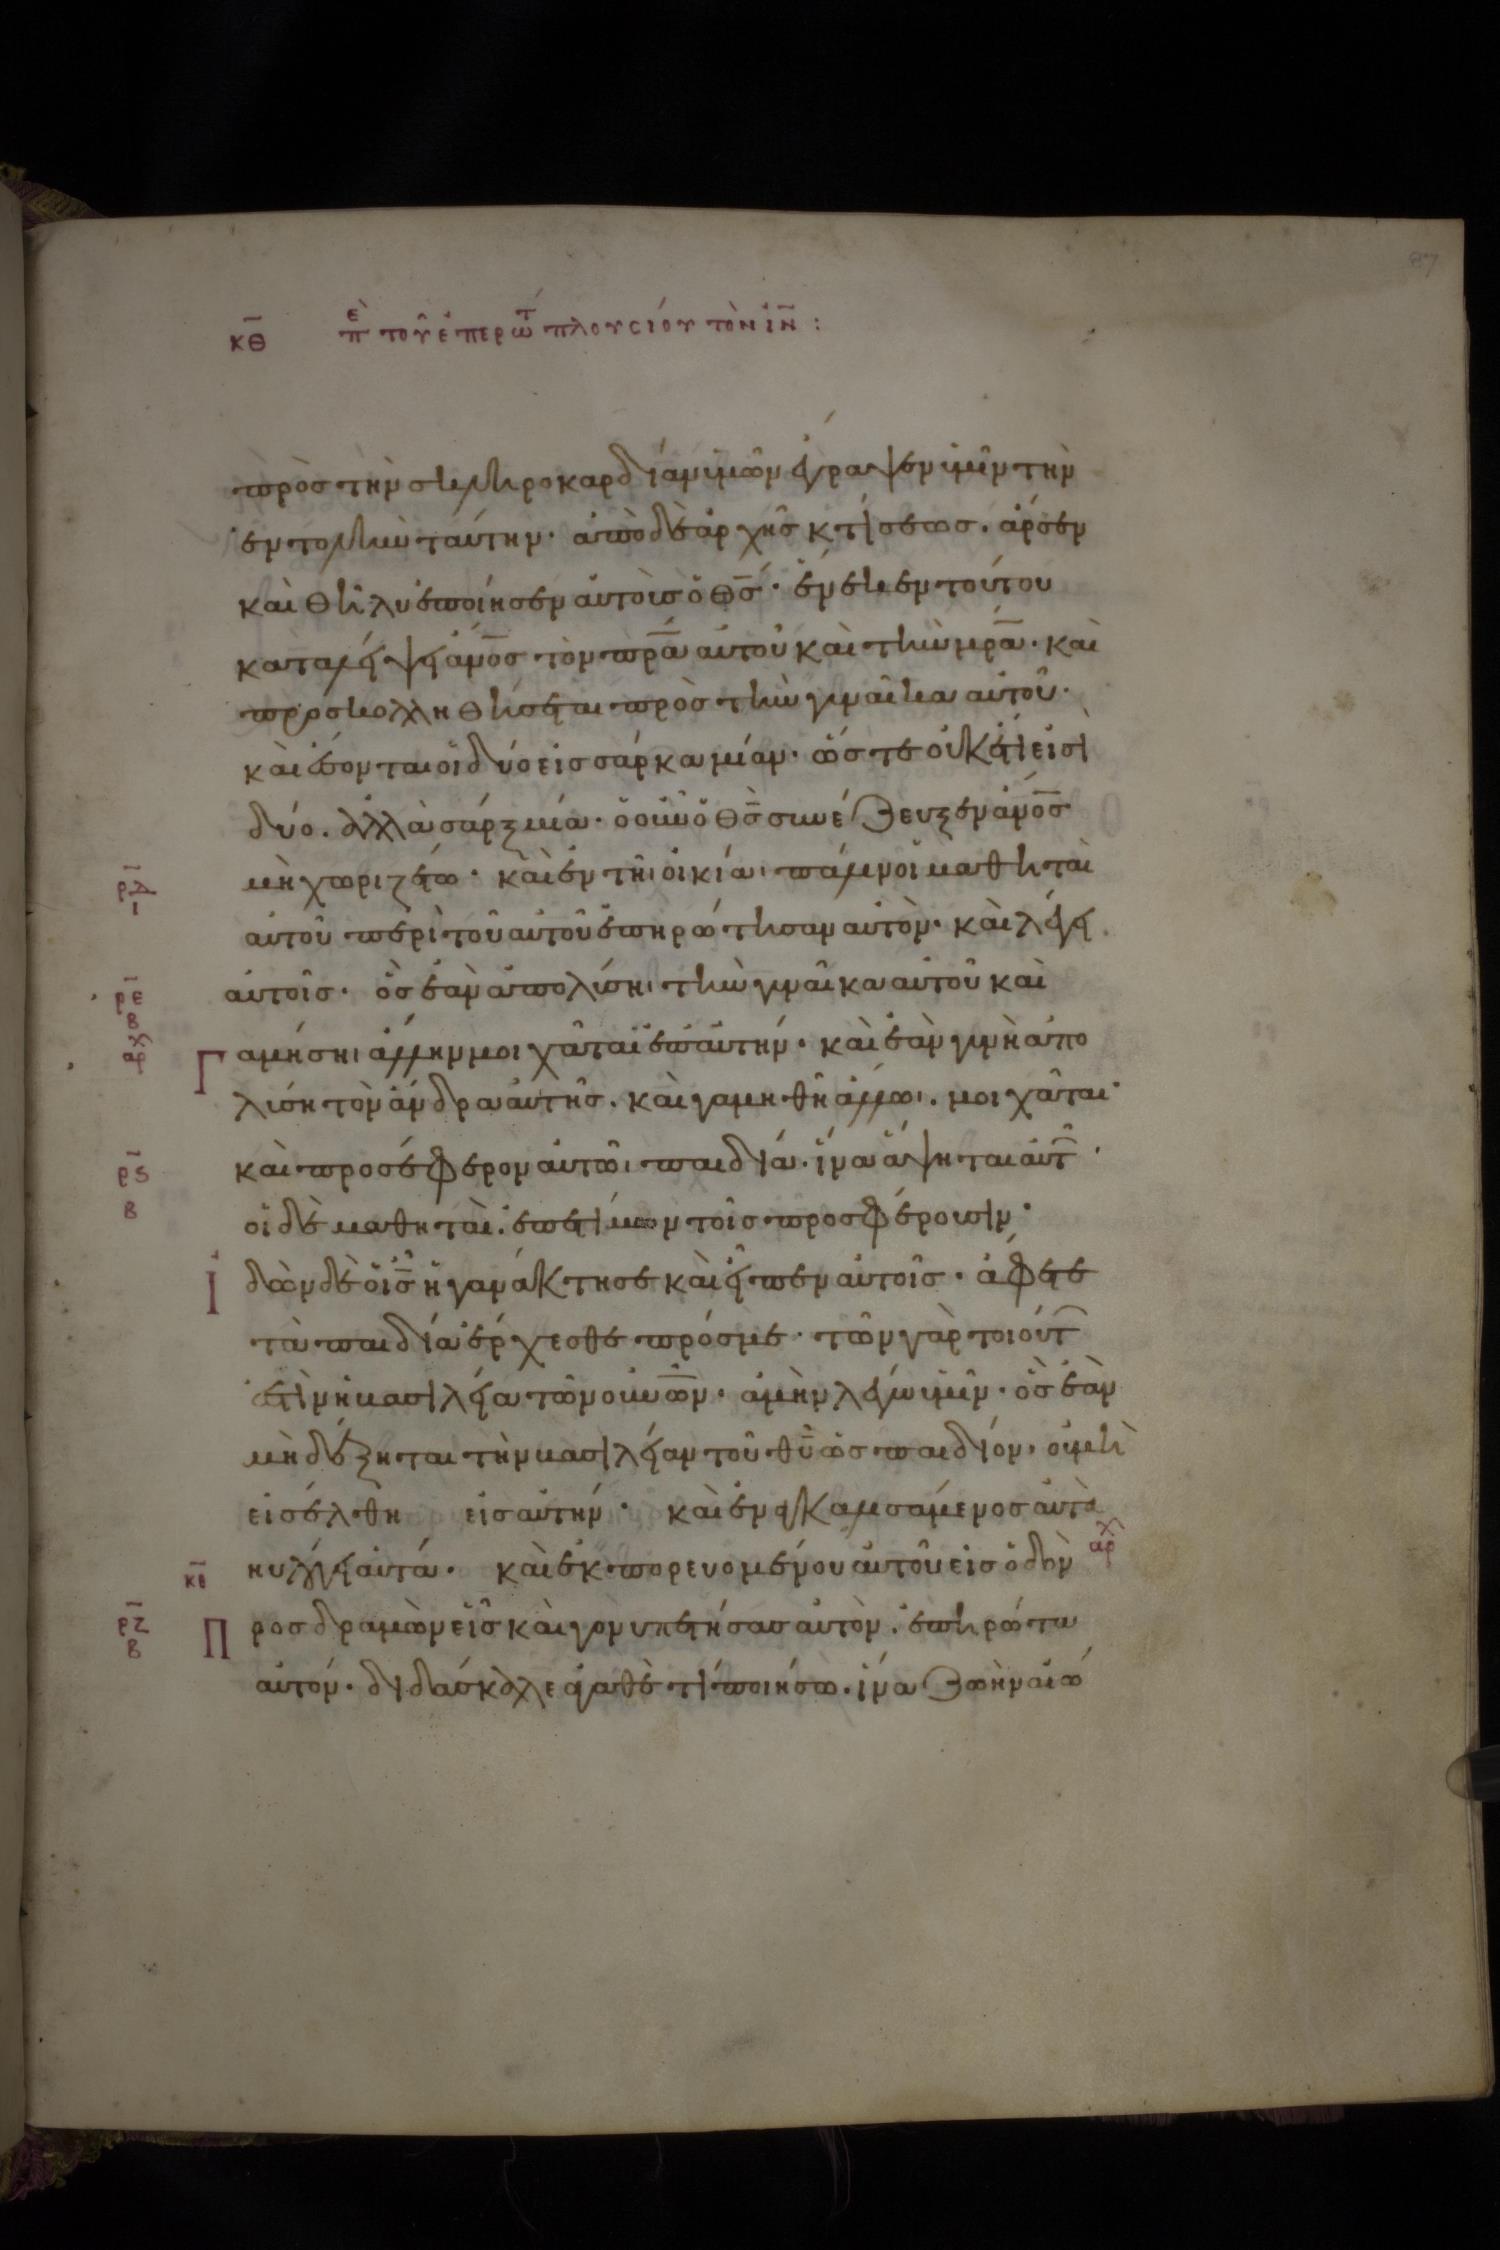 87
κθ πὲ τοῦ ἐπερωτ́ πλουσίου τὸν ἰν̅ :
πρὸσ τὴν σκληροκαρδίαν ὑμῶν ἔγραψεν ὑμῖν τὴν
ἐντολὴν ταύτην· ἀπὸ δὲ ἀρχῆσ κτίσεωσ. ἄρσεν
καὶ θῆλυ ἐποίησεν αὐτοὺσ ὁ θσ̅· ἕνεκεν τούτου
καταλείψει ἀνο̅σ τὸν πρ̅α αὐτοῦ καὶ τὴν μρ̅α· καὶ
προσκολληθήσεται πρὸσ τὴν γυναῖκα αὐτοῦ·
καὶ ἔσονται οἱ δύο εἰσ σάρκα μίαν· ὥστε οὐκέτι εἰσὶ
δύο. ἀλλὰ σὰρξ μία· ὃ οὖν ὁ θσ̅ συνέζευξεν ἀνο̅σ
ρδ̅ ι μὴ χωριζέτω· καὶ ἐν τῆι οἰκίαι πάλιν οἱ μαθηταὶ
αὐτοῦ περὶ τοῦ αὐτοῦ ἐπηρώτησαν αὐτὸν· καὶ λέγει
ρε̅ β αὐτοῖσ· ὃσ ἐὰν ἀπολύσηι τὴν γυναῖκα αὐτοῦ καὶ
αρχ Γαμήσηι ἄλλην μοιχᾶται ἐπ αὐτήν· καὶ ἐὰν γυνὴ ἀπο
λύση τὸν ἄνδρα αὐτῆσ. καὶ γαμηθῆ ἄλλωι. μοιχᾶται·
ρς̅ β καὶ προσέφερον αὐτῶι παιδία. ἵνα ἅψηται αὐτ͂·
οἱ δὲ μαθηταὶ. ἐπετίμων τοῖσ προσφέρουσιν·
Ἰδὼν δὲ ὁ ισ̅ ἠγανάκτησε καὶ εἶπεν αὐτοῖσ· ἄφετε
τὰ παιδία ἔρχεσθε πρόσ με· τῶν γὰρ τοιούτ͂
ἐστὶν ἡ βασιλεία τῶν οὐνω̅ν· ἀμὴν λέγω ὑμῖν· ὃσ ἐὰν
μὴ δέξηται τὴν βασιλείαν τοῦ θυ̅ ὡσ παιδίον, οὐ μὴ
εἰσέλθη εἰσ αὐτήν· καὶ ἐναγκαλισάμενοσ αὐτὰ
ηὐλόγει αὐτά· καὶ ἐκπορευομένου αὐτοῦ εἰσ ὁδὸν αρχ
κθ̅
ρζ̅ β Προσδραμὼν εἷσ καὶ γονυπετήσασ αὐτὸν. ἐπηρώτα
αὐτόν· διδάσκαλε ἀγαθὲ τί ποιήσω. ἵνα ζωὴν αἰώ